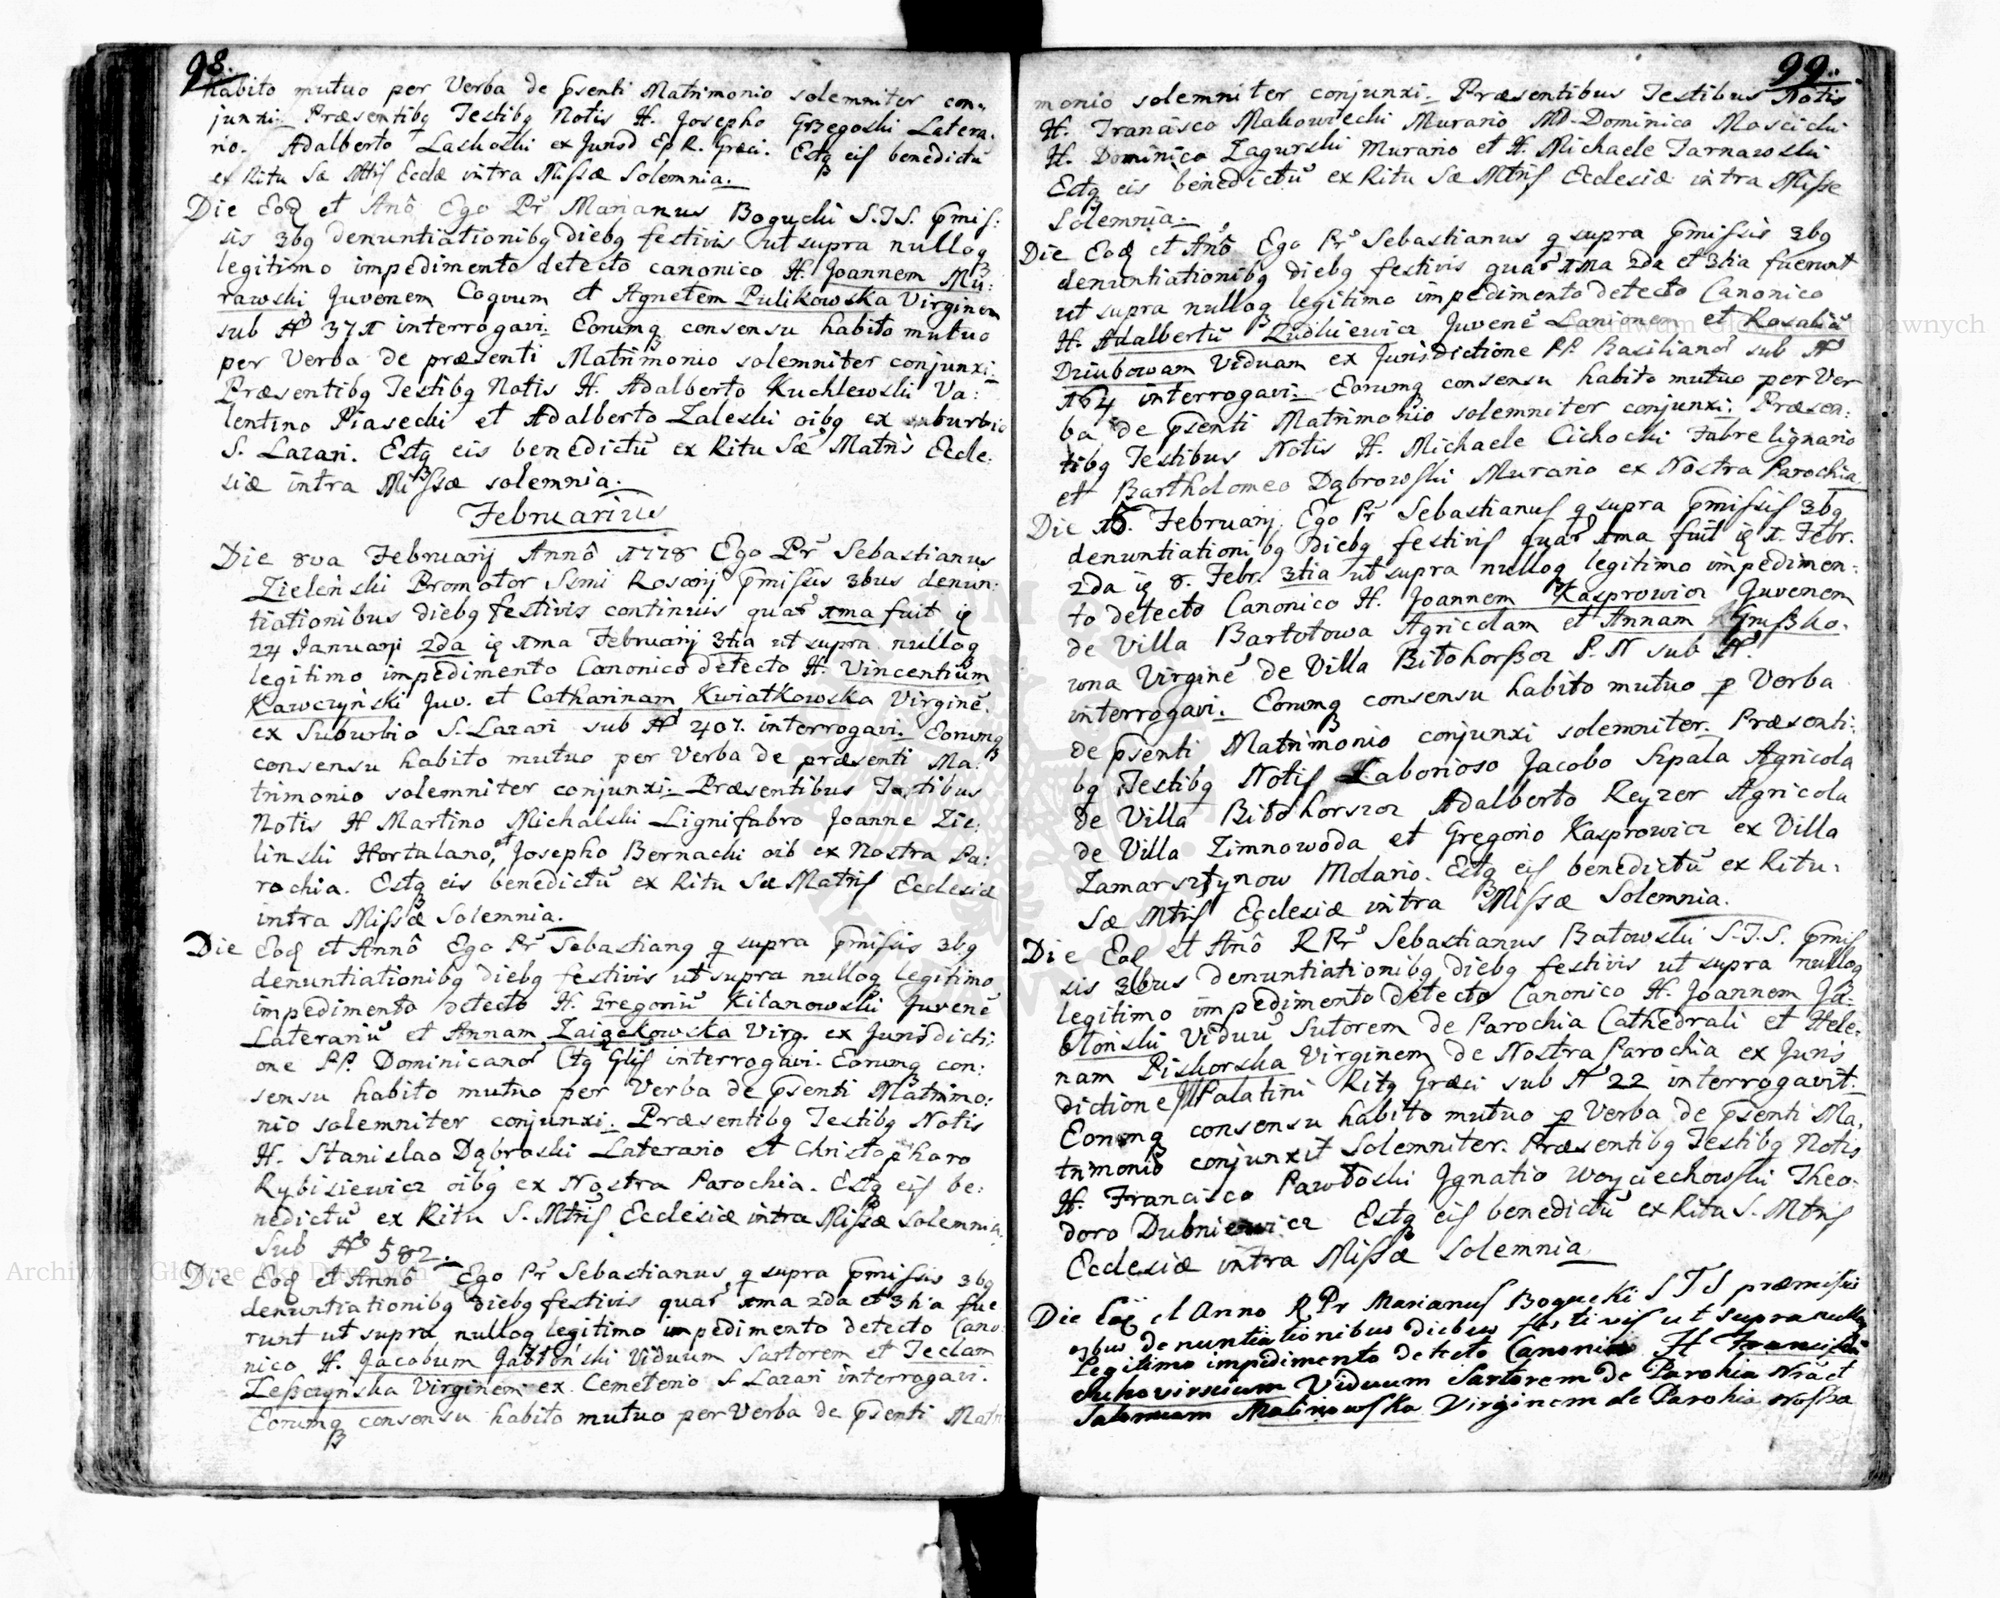 98.
habito mutuo per Verba de psenti Matrimonio solemniter con,
junxi. Præsentibq Testibq Notis H. Josepho Grzegoski Latera,
rio. Adalberto Laskoski ex Jurisd Ep R. Græci. Estq eis benedictũ
ex Ritu Sæ Mtris Eccłæ intra Missæ Solemnia.
Die Eoq et Anô Ego Pr Marjanus Bogucki S.T.S. pmis:
sis 3bq denuntiationibq diebq festivis ut supra nulloq
legitimo impedimento detecto canonico H. Joannem Mu:
rawski Juvenem Coquum et Agnetem Pulikowska Virginem
sub No 371 interrogavi. Eorumq consensu habito mutuo
per Verba de præsenti Matrimonio solemniter conjunxi.
Præsentibq Testibq Notis H. Adalberto Kuchlewski Va:
lentino Piasecki et Adalberto Zaleski oibq ex suburbio
S. Lazari. Estq eis benedictũ ex Ritu Sæ Matris Eccle:
siæ intra Missæ solemnia.
Februarius
Die 8va Februarij Annô 1778 Ego Pr Sebastianus
Zieleński Promotor Ssmi Rosarij pmissis 3bus denun:
tiationibus diebq festivis continuis quar 1ma fuit ie
24 Januarji 2da ie 1ma Februarij 3tia ut supra nulloq
legitimo impedimento Canonico detecto H. Vincentium
Kawczyński Juv. et Catharinam Kwiatkowska Virginẽ.
ex Suburbio S. Lazari sub No 407. interrogavi. Eorumq
consensu habito mutuo per Verba de præsenti Ma:
trimonio solemniter conjunxi. Præsentibus Testibus
Notis H Martino Michalski Lignifabro Joanne Zie:
linski Hortulano, et Josepho Bernacki oib ex Nostra Pa:
rochia. Estq eis benedictũ ex Ritu Sæ Matris Ecclesiæ
intra Missæ Solemnia.
Die Eoq et Annô Ego Pr Sebastianq q supra pmissis 3bq
denuntiationibq diebq festivis ut supra nulloq legitimo
impedimento detecto H. Gregoriũ Kilanowski Juvenẽ
Laterariũ et Annam Zaigekowska Virg. ex Jurisdicti:
one PP. Dominicanor Ctq Glis interrogavi. Eorumq con:
sensu habito mutuo per Verba de psenti Matrimo:
nio solemniter conjunxi. Præsentibq Testibq Notis
H. Stanislao Dąbroski Laterario et Christopharo
Rybisiewicz oibq ex Nostra Parochia. Estq eis be:
nedictũ ex Ritu S. Mtris Ecclesiæ intra Missæ solemnia.
Sub No 582.
Die Eoq et Annô Ego Pr Sebastianus q supra pmissis 3bq
denuntiationibq diebq festivis quar 1ma 2da et 3tia fue
runt ut supra nulloq legitimo impedimento detecto Cano
nico H. Jacobum Jabłoński Viduum Sartorem et Teclam
Leszczynska Virginem ex Cemeterio S Lazari interrogavi.
Eorumq consensu habito mutuo per Verba de psenti Matri
99.
monio solemniter conjunxi. Præsentibus Testibus Notis
H. Francisco Makowiecki Murario MD. Dominico Moscicki
H. Dominico Zagurski Murario et H. Michaele Tarnawski
Estq eis benedictũ ex Ritu Sæ Mtris Ecclesiæ intra Missæ
Solemnia.
Die Eoq et Anô Ego Pr Sebastianus q supra pmissis 3bq
denuntiationibq diebq festivis quar 1ma 2da et 3tia fuerunt
ut supra nulloq legitimo impedimento detecto Canonico
H. Adalbertũ Ludkiewicz Juvenẽ Lanionem et Rosaliã
Dziubowam Viduam ex Jurisdictione PP. Basilianor sub No
164 interrogavi. Eorumq consensu habito mutuo per Ver
ba de psenti Matrimonio solemniter conjunxi. Præsen:
tibq Testibus Notis H. Michaele Cichocki Fabre lignario
et Bartholomeo Dąbrowski Murario ex Nostra Parochia.
Die 15. Februarij. Ego Pr Sebastianus q supra pmissis 3bq
denuntiationibq diebq festivis quar 1ma fuit ie 1. Febr.
2da ie 8. Febr. 3tia ut supra nulloq legitimo impedimen:
to detecto Canonico H. Joannem Kasprowicz Juvenem
de Villa Bartotowa Agricolam et Annam Gruszko:
wna Virginẽ de Villa Bitohorszcz P. N sub No
interrogavi. Eorumq consensu habito mutuo p Verba
de psenti Matrimonio conjunxi solemniter. Præsenti:
bq Testibq Notis Laborioso Jacobo Szpala Agricola
de Villa Bitohorszcz Adalberto Reyzer Agricola
de Villa Zimnowoda et Gregorio Kasprowicz ex Villa
Zamarsztynow Molario. Estq eis benedictũ ex Ritu.
Sæ Mtris Ecclesiæ intra Missæ Solemnia.
Die Eoq et Anô R Pr Sebastianus Batowski S.T.S. pmis
sis 3bus denuntiationibq diebq festivis ut supra nulloq
legitimo impedimento detecto Canonico H. Joannem Ja:
błoński Viduũ Sutorem de Parochia Cathedrali et Hele:
nam Piskorska Virginem de Nostra Parochia ex Juris
dictione Palatini Ritq Græci sub No 22 interrogavit.
Eorumq consensu habito mutuo p Verba de psenti Ma,
trimonio conjunxit Solemniter. Præsentibq Testibq Notis
H. Francisco Pawłoski Jgnatio Woyciechowski Theo:
doro Dubniewicz Estq eis benedictũ ex Ritu S. Mtris
Ecclesiæ intra Missæ Solemnia.
Die Eoq et Anno R Pr Marianus Bogucki S T S præmissis
3bus denuntiationibus diebus festivis ut supra nulloq
legitimo impedimento detecto Canonico H Franciscum
Viduum Sartorem de Parohia Nra et
Salomeam Malinowska Virginem de Parohia Nostra
Archiwum Główne Akt Dawnych
Archiwum Główne Akt Dawnych